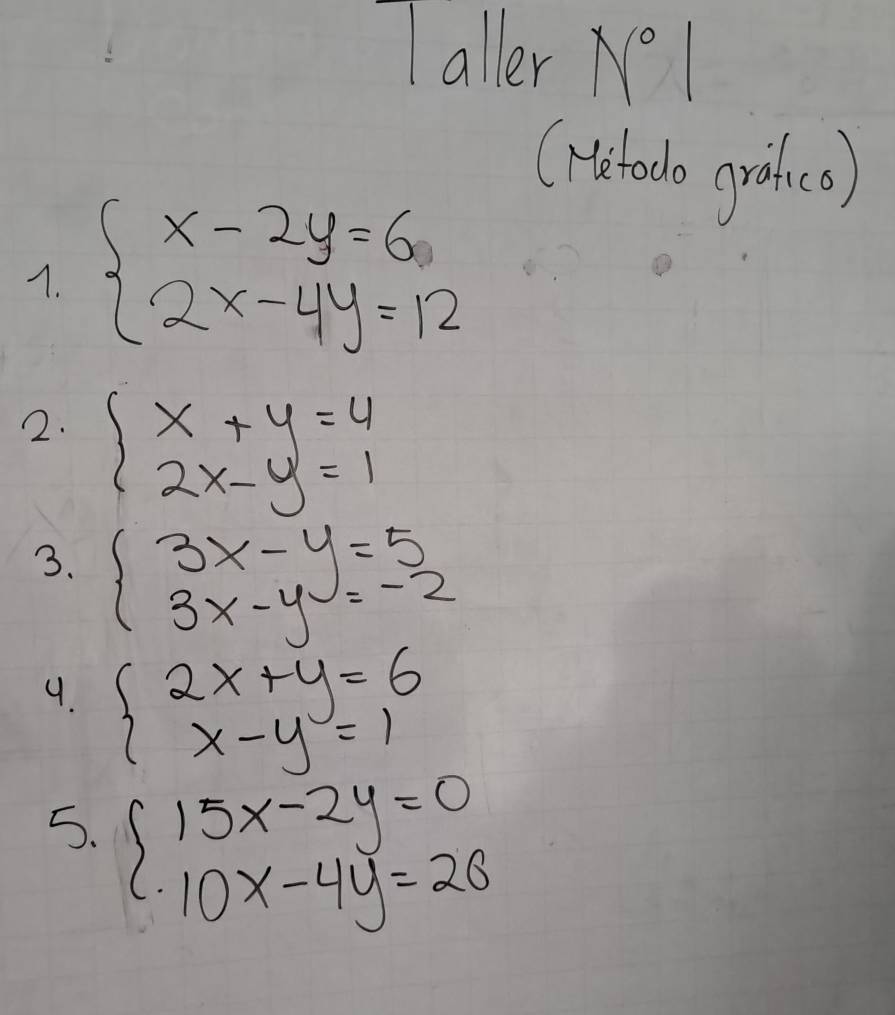 Taller N° 1
(Método gráfico)
1. { x - 2y = 6
2x - 4y = 12
2. { x + y = 4
2x - y = 1
3. { 3x - y = 5
3x - y = -2
4. { 2x + y = 6
x - y = 1
5. { 15x - 2y = 0
10x - 4y = 26